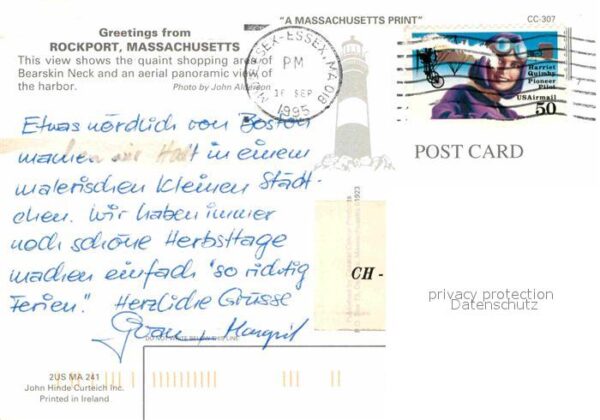 Greetings from
ROCKPORT, MASSACHUSETTS
This view shows the quaint shopping area of
Bearskin Neck and an aerial panoramic view of
the harbor. Photo by John
"A MASSACHUSETTS PRINT"
CC-307
MIDDLESEX-ESSEX, MA 018
PM
16 SEP
1995
Harriet
Quimby
Pioneer
Pilot
USAirmail
50
POST CARD
Etwas nördlich von Boston
machen wir Halt in einem
malerischen kleinen Städt-
chen. Wir haben immer
noch schöne Herbsttage
machen einfach "so richtig
Ferien". Herzliche Grüsse
Margrit
CH -
privacy protection
Datenschutz
DO NOT WRITE BELOW THIS LINE
2US MA 241
John Hinde Curteich Inc.
Printed in Ireland